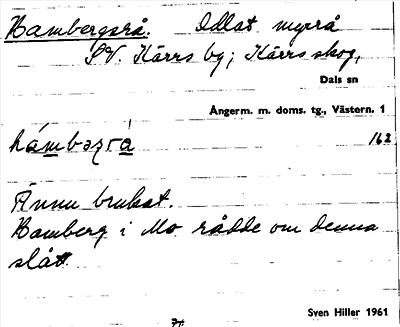 Hambergsrå. Odlat myrrå
S.V. Kärrs by; Kärrs skog,
Dals sn
Ångerm. m. doms. tg., Västern. 1
hámbəzrá 162
Ännu brukat.
Hamberg i Mo rådde om denna
slått
Sven Hiller 1961